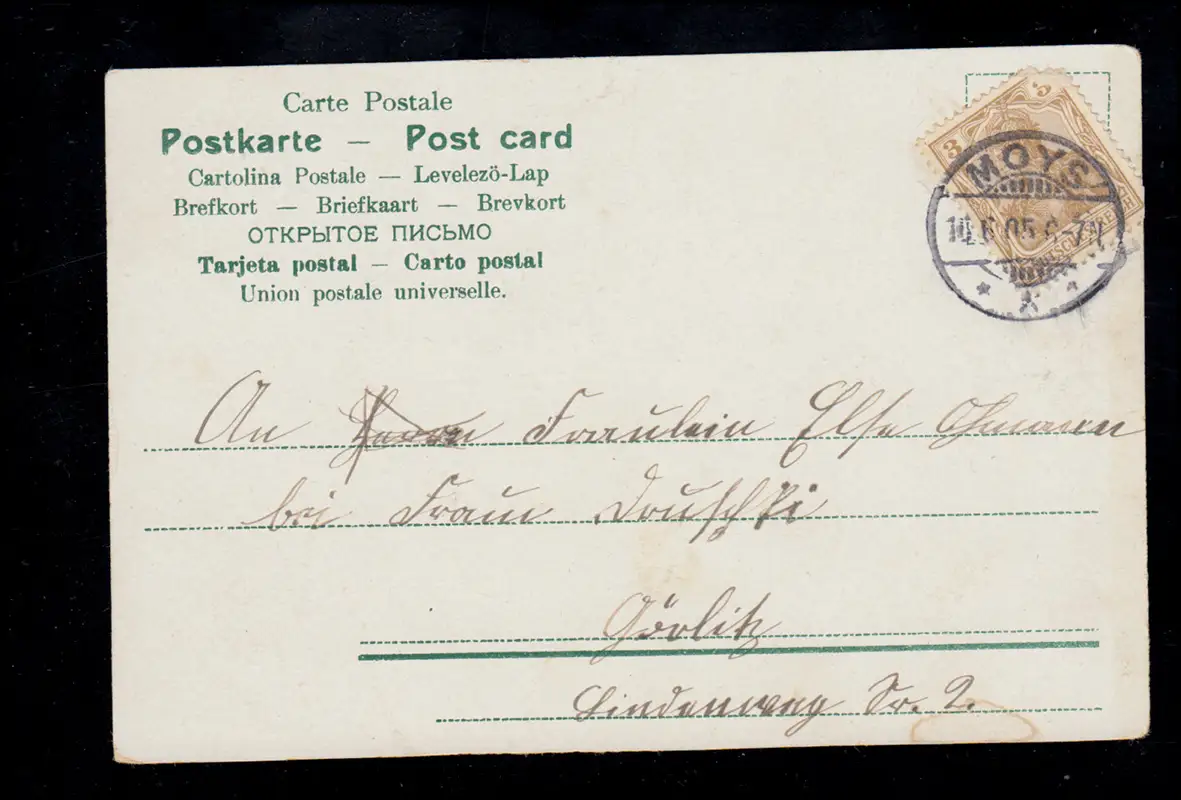 Carte Postale
Postkarte — Post card
Cartolina Postale — Levelezö-Lap
Brefkort — Briefkaart — Brevkort
ОТКРЫТОЕ ПИСЬМО
Tarjeta postal — Carto postal
Union postale universelle.
3 3
MOYS
6 05 6-7N
An Fräulein Else
bei Frau
Görlitz
Lindenweg Nr. 2.